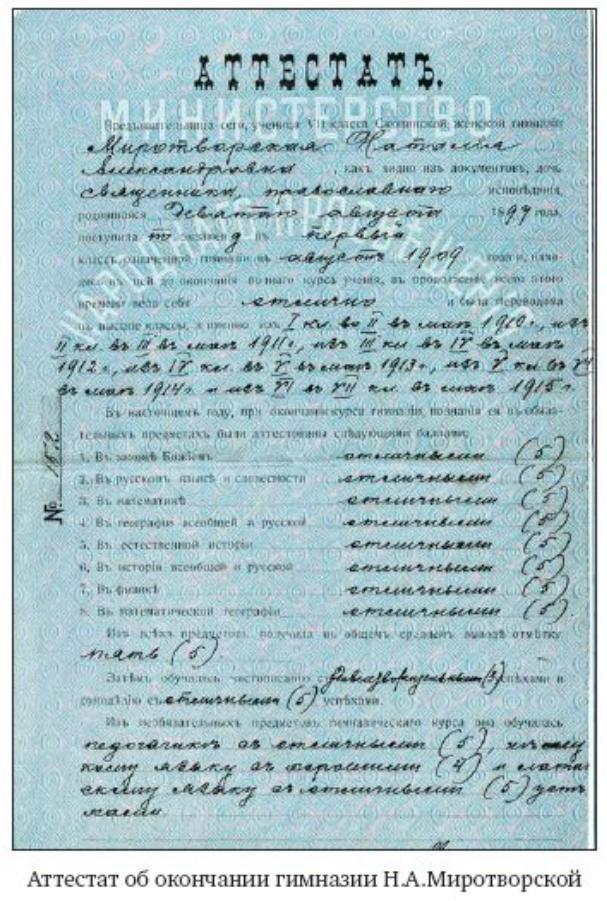 АТТЕСТАТЪ.
МИНИСТЕРСТВО
НАРОДНАГО ПРОСВѢЩЕНІЯ
Предъявительница сего, ученица VII класса Скопинской женской гимназіи
Миротворская Наталія
Александровна, какъ видно изъ документовъ, дочь
священника, православнаго исповѣданія,
родившаяся Девятаго августа 1897 года,
поступила по экзамену въ первый
классъ означенной гимназіи въ августѣ 1909 года и, нахо-
дясь въ ней до окончанія полнаго курса ученія, въ продолженіе всего этого
времени вела себя отлично и была переводима
въ высшіе классы, а именно изъ I кл. во II въ маѣ 1910 г., изъ
II кл. въ III въ маѣ 1911 г., изъ III кл. въ IV въ маѣ
1912 г., изъ IV кл. въ V въ маѣ 1913 г., изъ V кл. въ VI
въ маѣ 1914 г. и изъ VI въ VII кл. въ маѣ 1915 г.
Въ настоящемъ году, при окончаніи курса гимназіи, познанія ея въ обяза-
тельныхъ предметахъ были аттестованы слѣдующими баллами:
1. Въ законѣ Божіемъ отличными (5)
2. Въ русскомъ языкѣ и словесности отличными (5)
3. Въ математикѣ отличными (5)
4. Въ географіи всеобщей и русской отличными (5)
5. Въ естественной исторіи отличными (5)
6. Въ исторіи всеобщей и русской отличными (5)
7. Въ физикѣ отличными (5)
8. Въ математической географіи отличными (5).
№
Изъ всѣхъ предметовъ получила въ общемъ среднемъ выводѣ отмѣтку
пять (5)
Затѣмъ обучалась чистописанію съ удовлетворительными (3) успѣхами и
рукодѣлію съ отличными (5) успѣхами.
Изъ необязательныхъ предметовъ гимназическаго курса она обучалась
педагогикѣ съ отличными (5), нѣмец
кому языку съ хорошими (4) и латин
скому языку съ отличными (5) успѣ
хами
Аттестат об окончании гимназии Н.А.Миротворской